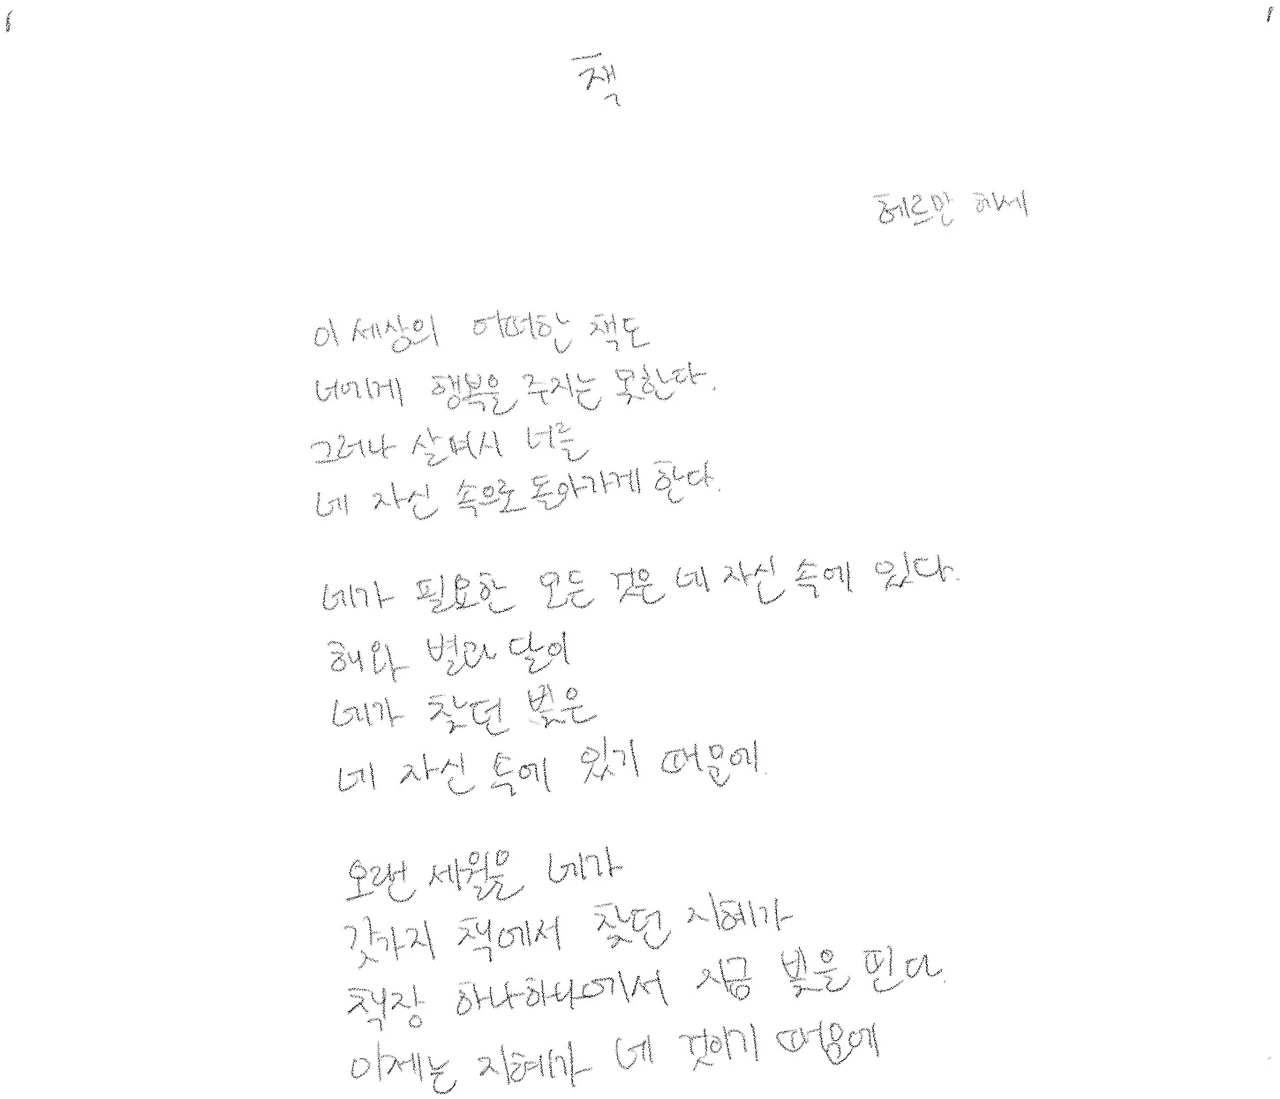 책
헤르만 헤세
이 세상의 어떠한 책도
너에게 행복을 주지는 못한다.
그러나 살며시 너를
네 자신 속으로 돌아가게 한다.
네가 필요한 모든 것은 네 자신 속에 있다.
해와 별과 달이
네가 찾던 빛은
네 자신 속에 있기 때문에.
오랜 세월을 네가
갖가지 책에서 찾던 지혜가
책장 하나하나에서 지금 빛을 띤다.
이제는 지혜가 네 것이기 때문에